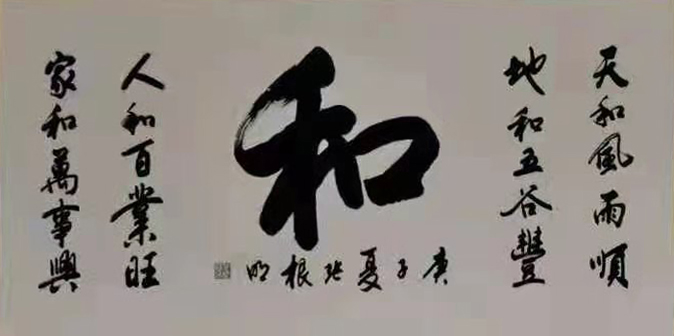 天和風雨順
地和五谷豐
和
庚子夏張根明
人和百業旺
家和萬事興